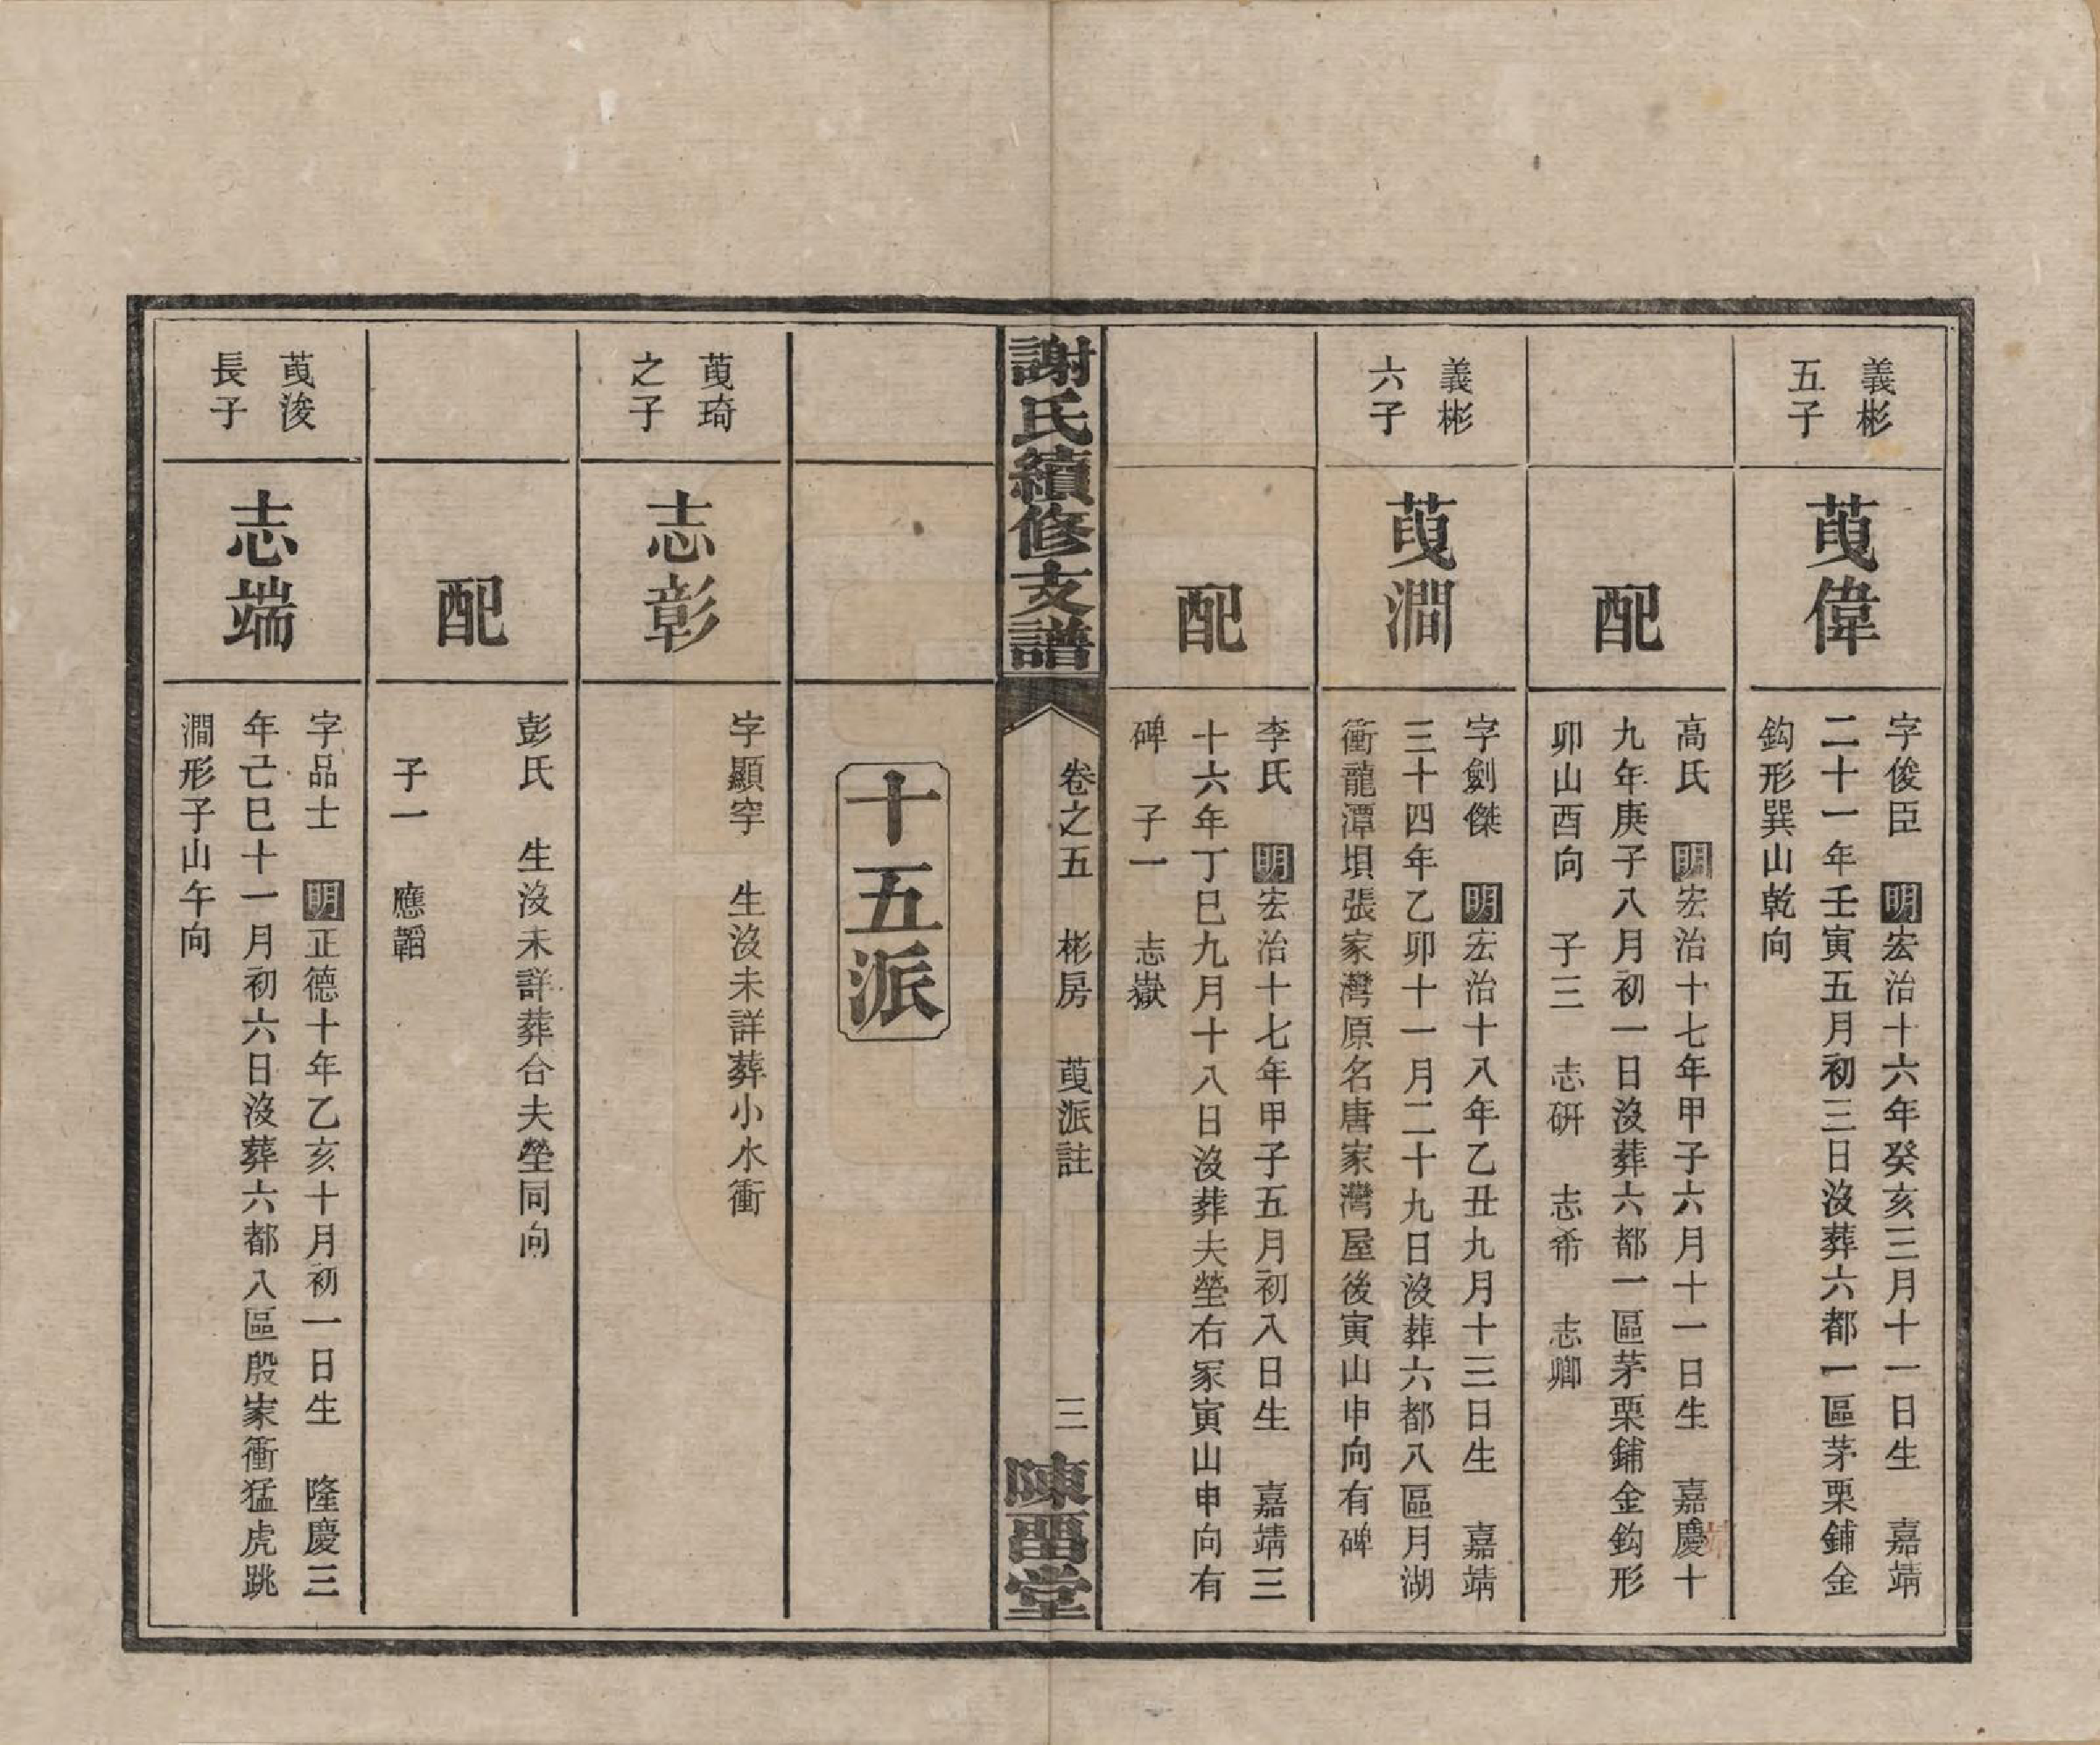 義彬
五子
萸偉
字俊臣　明宏治十六年癸亥三月十一日生　嘉靖
二十一年壬寅五月初三日沒葬六都一區茅栗鋪金
鈎形巽山乾向
配
高氏　明宏治十七年甲子六月十一日生　嘉慶十
九年庚子八月初一日沒葬六都一區茅栗鋪金鈎形
卯山酉向　子三　志硏　志希　志卿
義彬
六子
萸澗
字劍傑　明宏治十八年乙丑九月十三日生　嘉靖
三十四年乙卯十一月二十九日沒葬六都八區月湖
衝龍潭垻張家灣原名唐家灣屋後寅山申向有碑
配
李氏　明宏治十七年甲子五月初八日生　嘉靖三
十六年丁巳九月十八日沒葬夫塋右冢寅山申向有
碑　子一　志嶽
謝氏續修支譜
卷之五　彬房　萸派註
三
陳畱堂
十五派
萸琦
之子
志彰
字顯罕　生沒未詳葬小水衝
配
彭氏　生沒未詳葬合夫塋同向
子一　應韜
萸浚
長子
志端
字品士　明正德十年乙亥十月初一日生　隆慶三
年己巳十一月初六日沒葬六都八區殷家衝猛虎跳
澗形子山午向